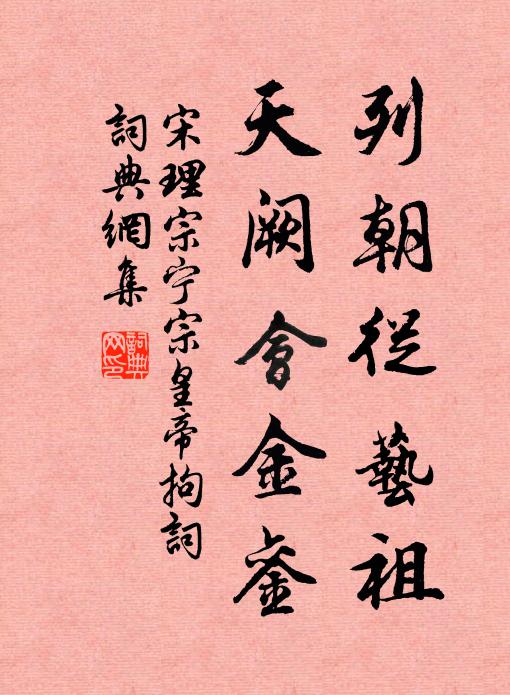 列朝從藝祖
天闕會金崟
宋理宗宁宗皇帝拘詞
詞典網集
詞典网印